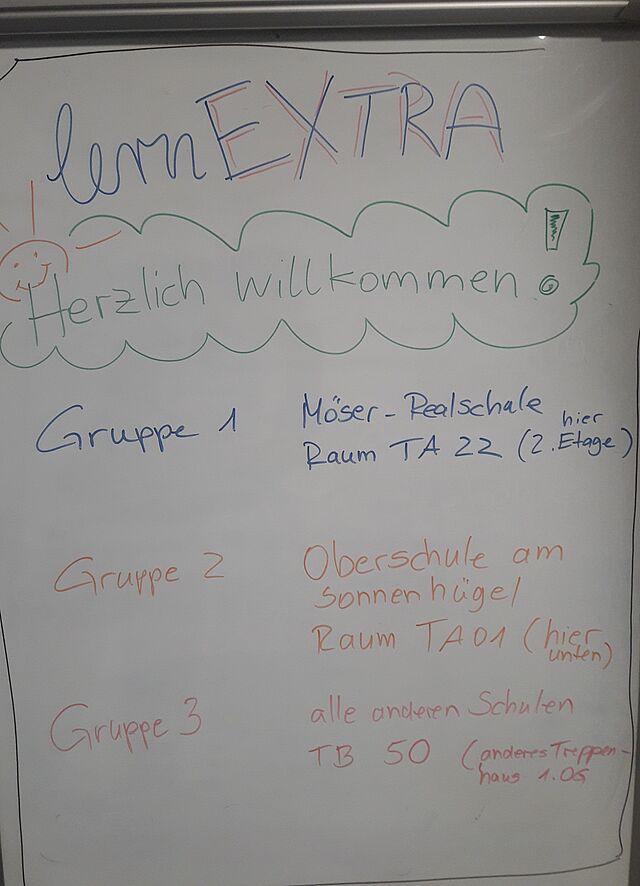 lernEXTRA
Herzlich willkommen!
Gruppe 1
Möser-Realschale
Raum TA 22 (2. Etage)
hier
Gruppe 2
Oberschule am
Sonnenhügel
Raum TA01 (hier
unten)
Gruppe 3
alle anderen Schulen
TB 50 (anderes Treppen-
haus 1.OG